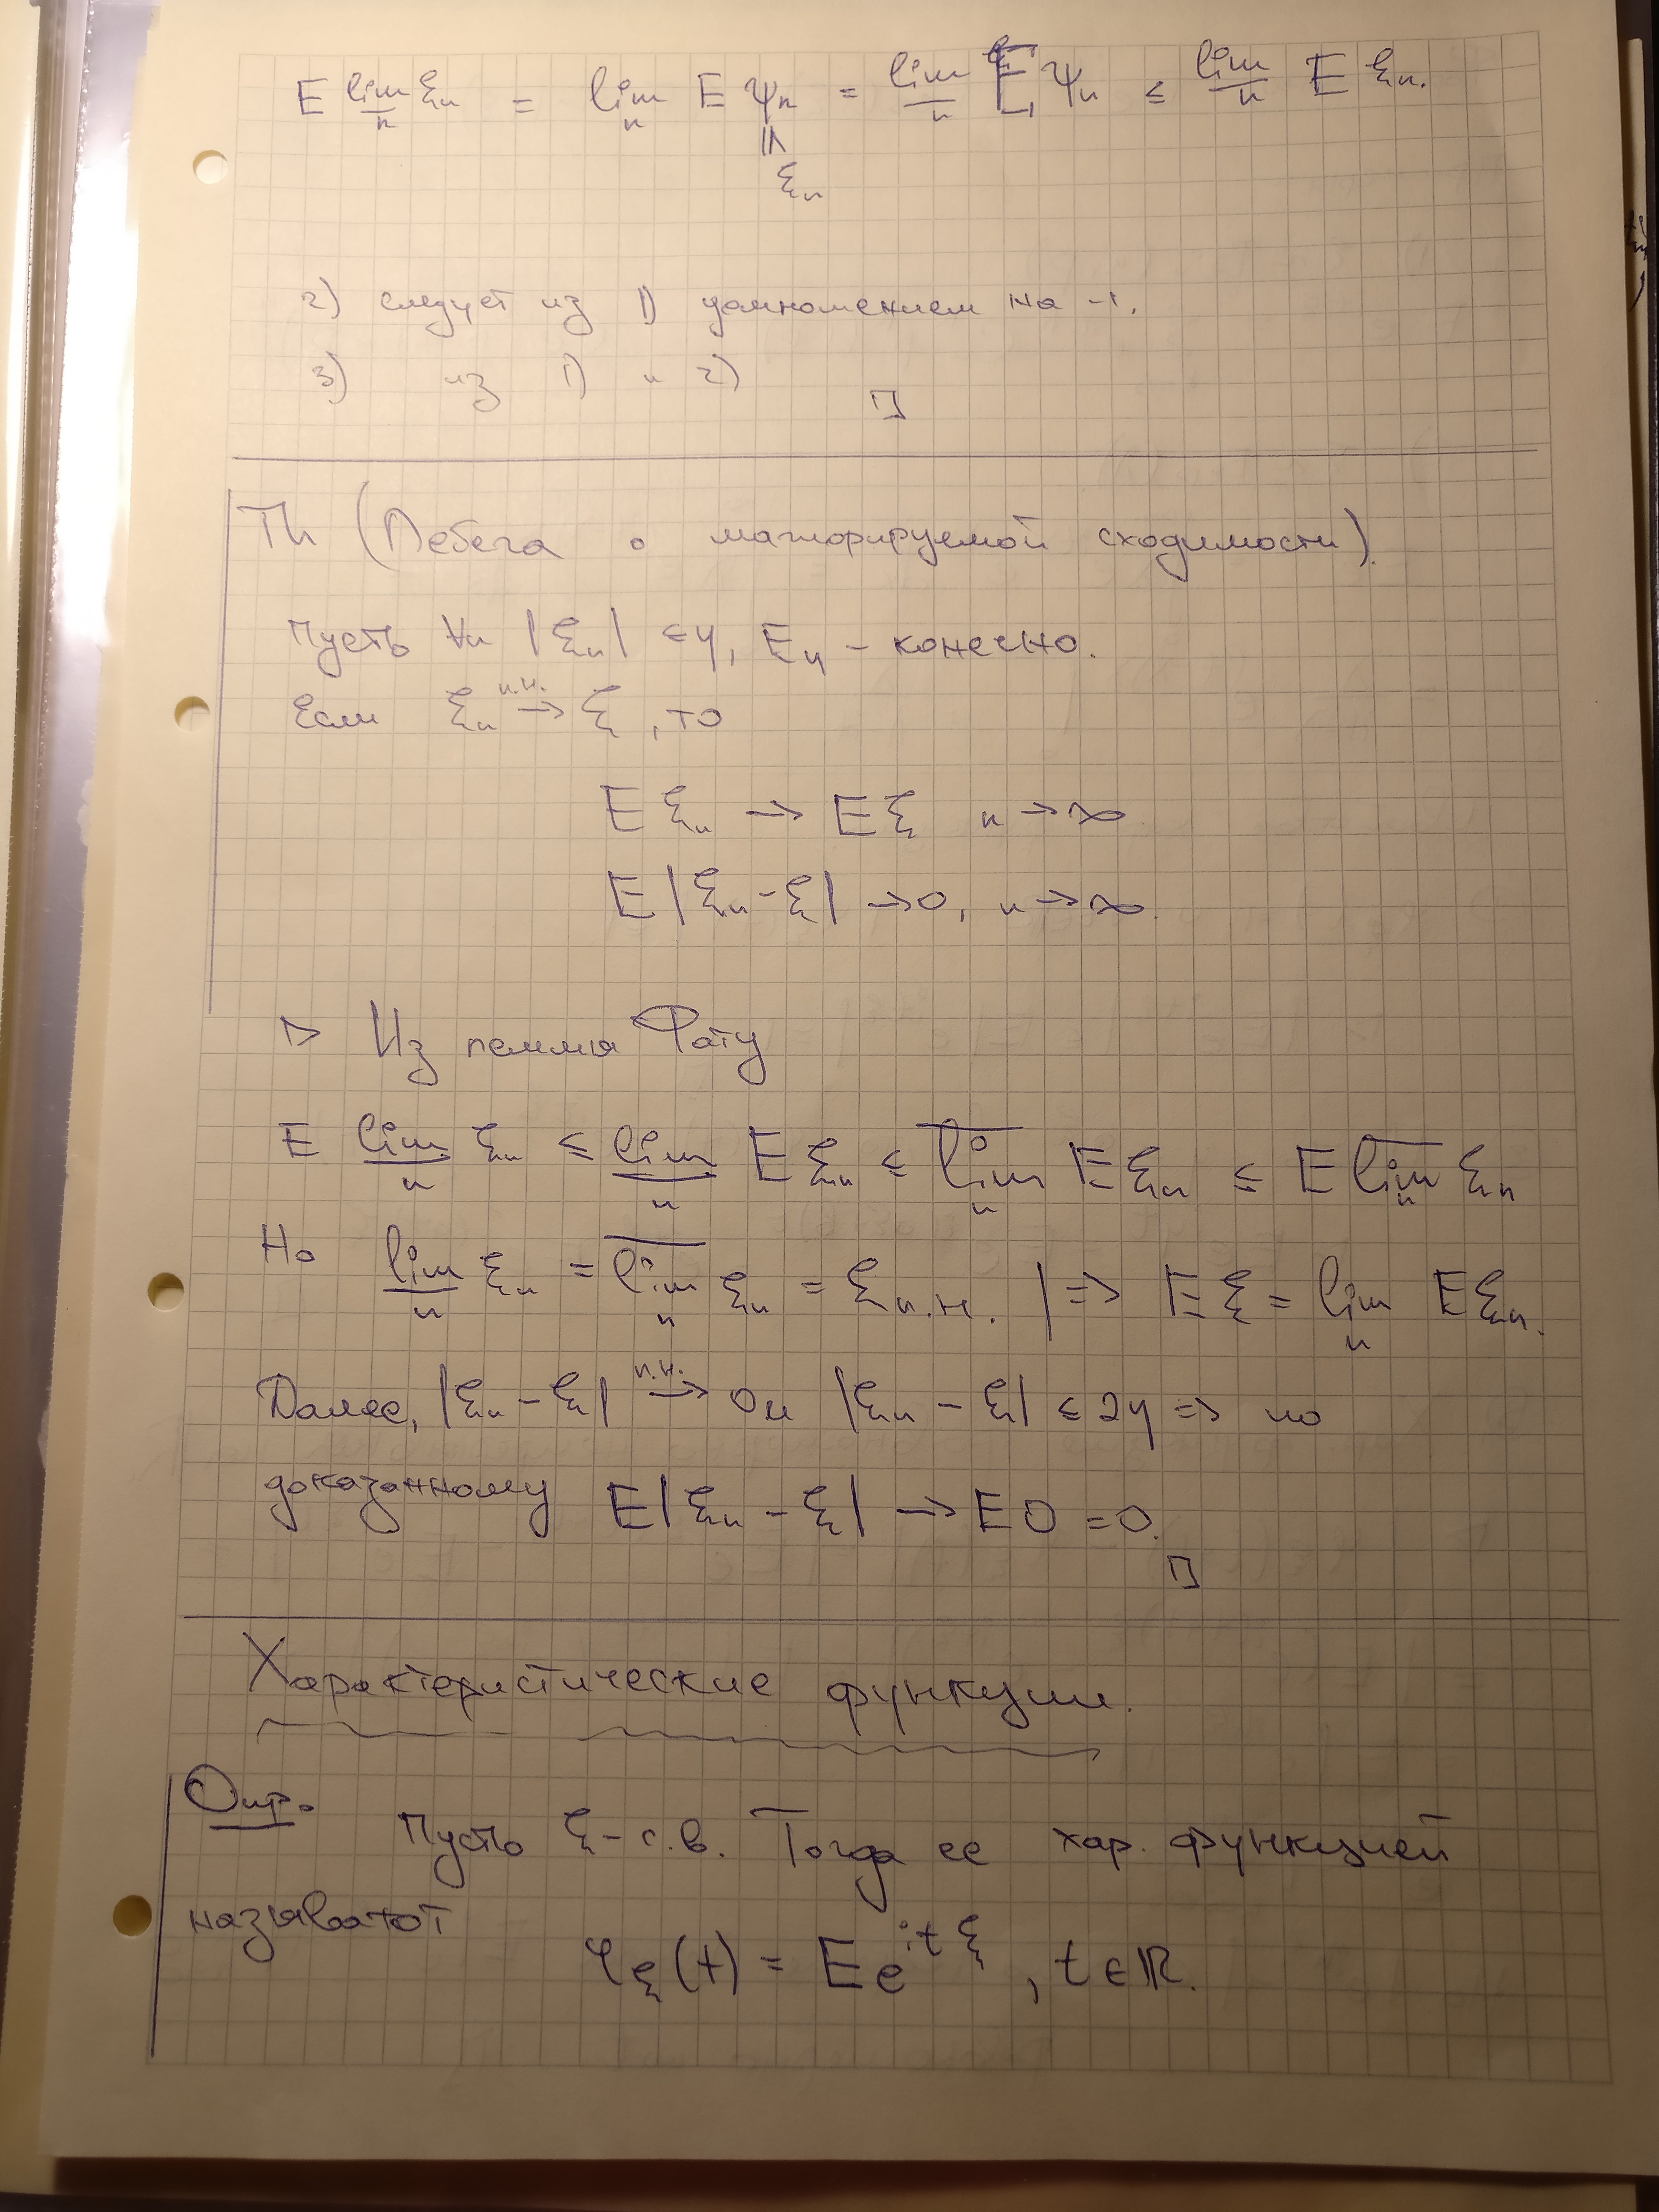 E lim_n ξ_n = lim_n E ψ_n = lim_n E ψ_n ≤ lim_n E ξ_n.
≤
ξ_n
2) следует из 1) домножением на -1.
3) из 1) и 2)
Th (Лебега о мажорируемой сходимости).
Пусть ∀n |ξ_n| ≤ η, Eη - конечно.
Если ξ_n п.н.→ ξ, то
Eξ_n → Eξ n → ∞
E|ξ_n - ξ| → 0, n → ∞.
▷ Из леммы Фату
E lim_n ξ_n ≤ lim_n Eξ_n ≤ lim_n Eξ_n ≤ E lim_n ξ_n
Но lim_n ξ_n = lim_n ξ_n = ξ п.н. | ⇒ Eξ = lim_n Eξ_n.
Далее, |ξ_n - ξ| п.н.→ 0 и |ξ_n - ξ| ≤ 2η ⇒ по
доказанному E|ξ_n - ξ| → E0 = 0.
Характеристические функции.
Опр.
Пусть ξ - с.в. Тогда ее хар. функцией
называют
φ_ξ(t) = Ee^{itξ}, t∈ℝ.